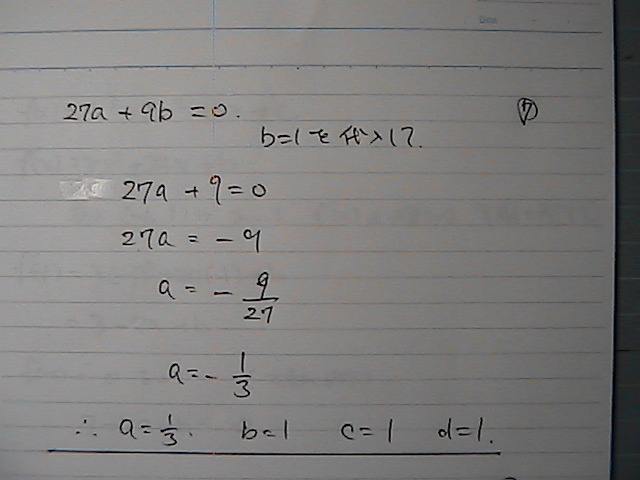 27a + 9b = 0.
⑦
b=1を代入して.
27a + 9 = 0
27a = - 9
a = - 9/27
a = - 1/3
∴ a = 1/3. b=1 c=1 d=1.